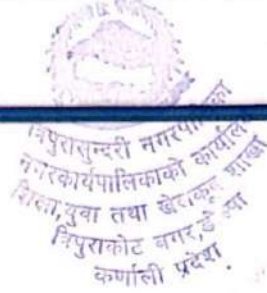 त्रिपुरासुन्दरी नगरपालिका
नगरकार्यपालिकाको कार्यालय
शिक्षा, युवा तथा खेलकूद शाखा
त्रिपुराकोट बगर,
कर्णाली प्रदेश.